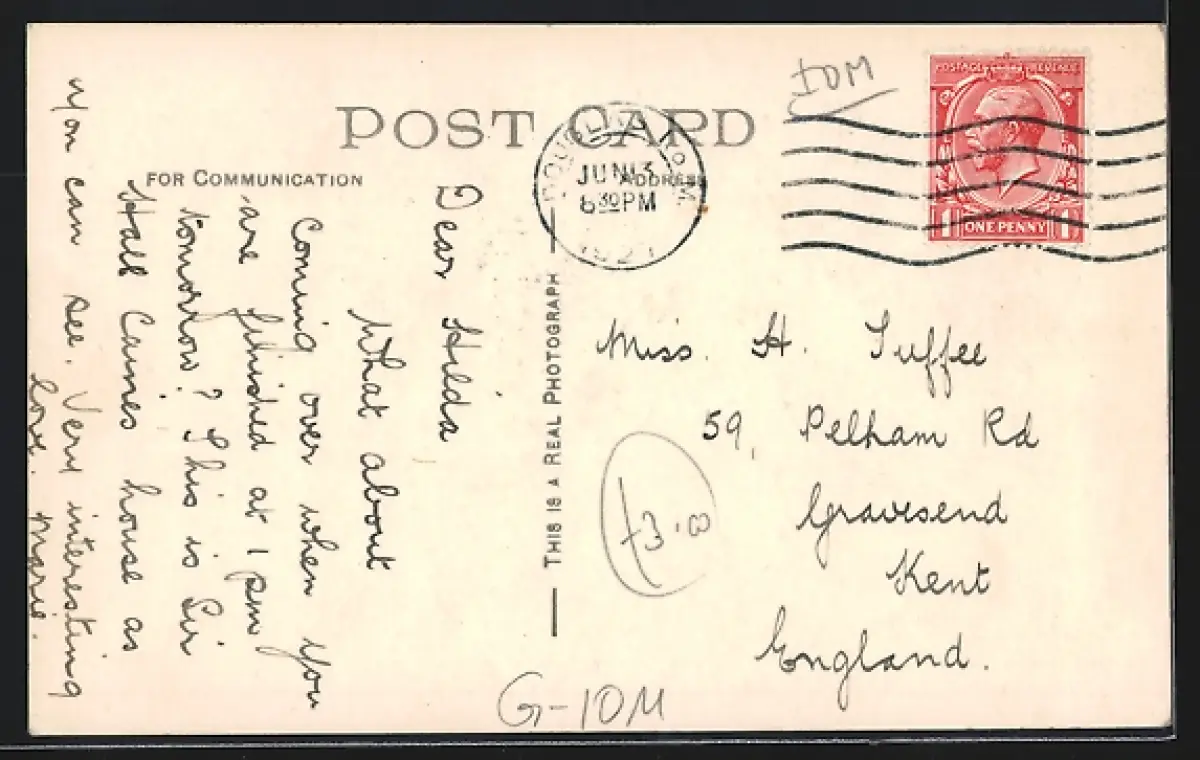 POST CARD
FOR COMMUNICATION
ADDRESS
IOM
DOUGLAS I. OF M.
JUN 13
6 30 PM
POSTAGE REVENUE
1 ONE PENNY 1
Dear Hilda
What about
Coming over when you
are finished at 1 pm
tomorrow? This is Sir
Hall Caines house as
you can see. Very interesting
love. Marie.
THIS IS A REAL PHOTOGRAPH
Miss. H. Tuffee
59, Pelham Rd
Gravesend
Kent
England.
G-IOM